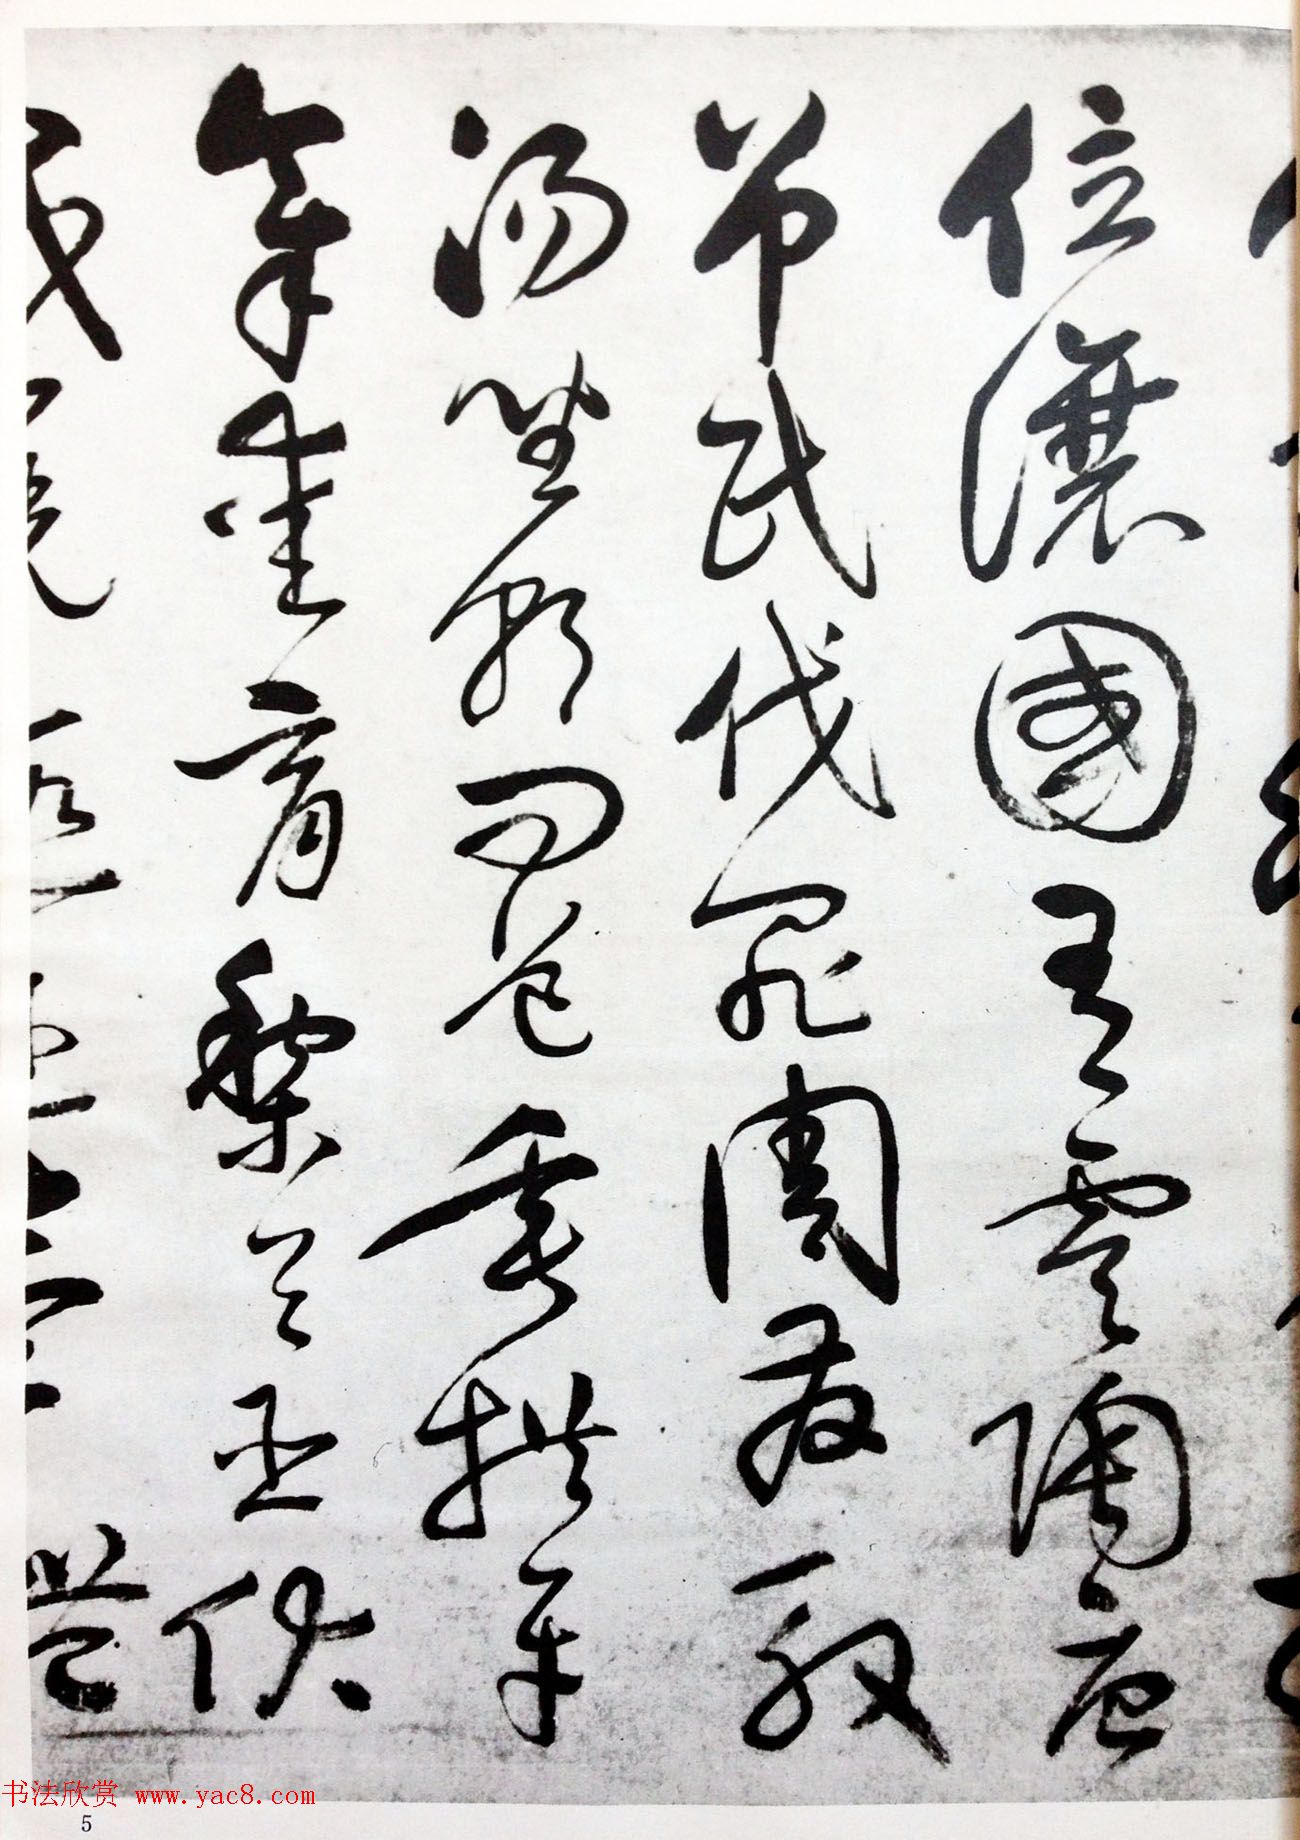 位讓國有虞陶唐
吊民伐罪周發殷
湯坐朝問道垂拱平
章愛育黎首臣伏
戎羌
书法欣赏 www.yac8.com
5